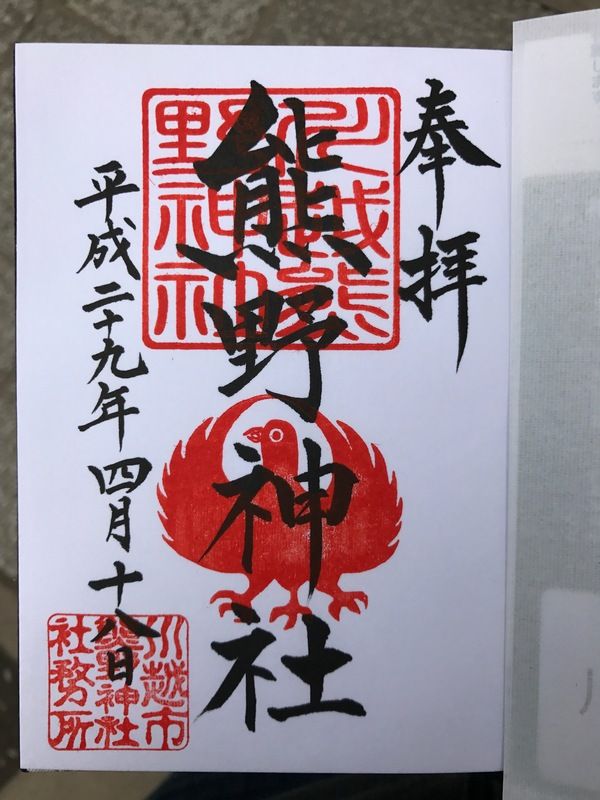 奉拝
川越熊野神社
熊野神社
平成二十九年四月十八日
川越市
熊野神社
社務所